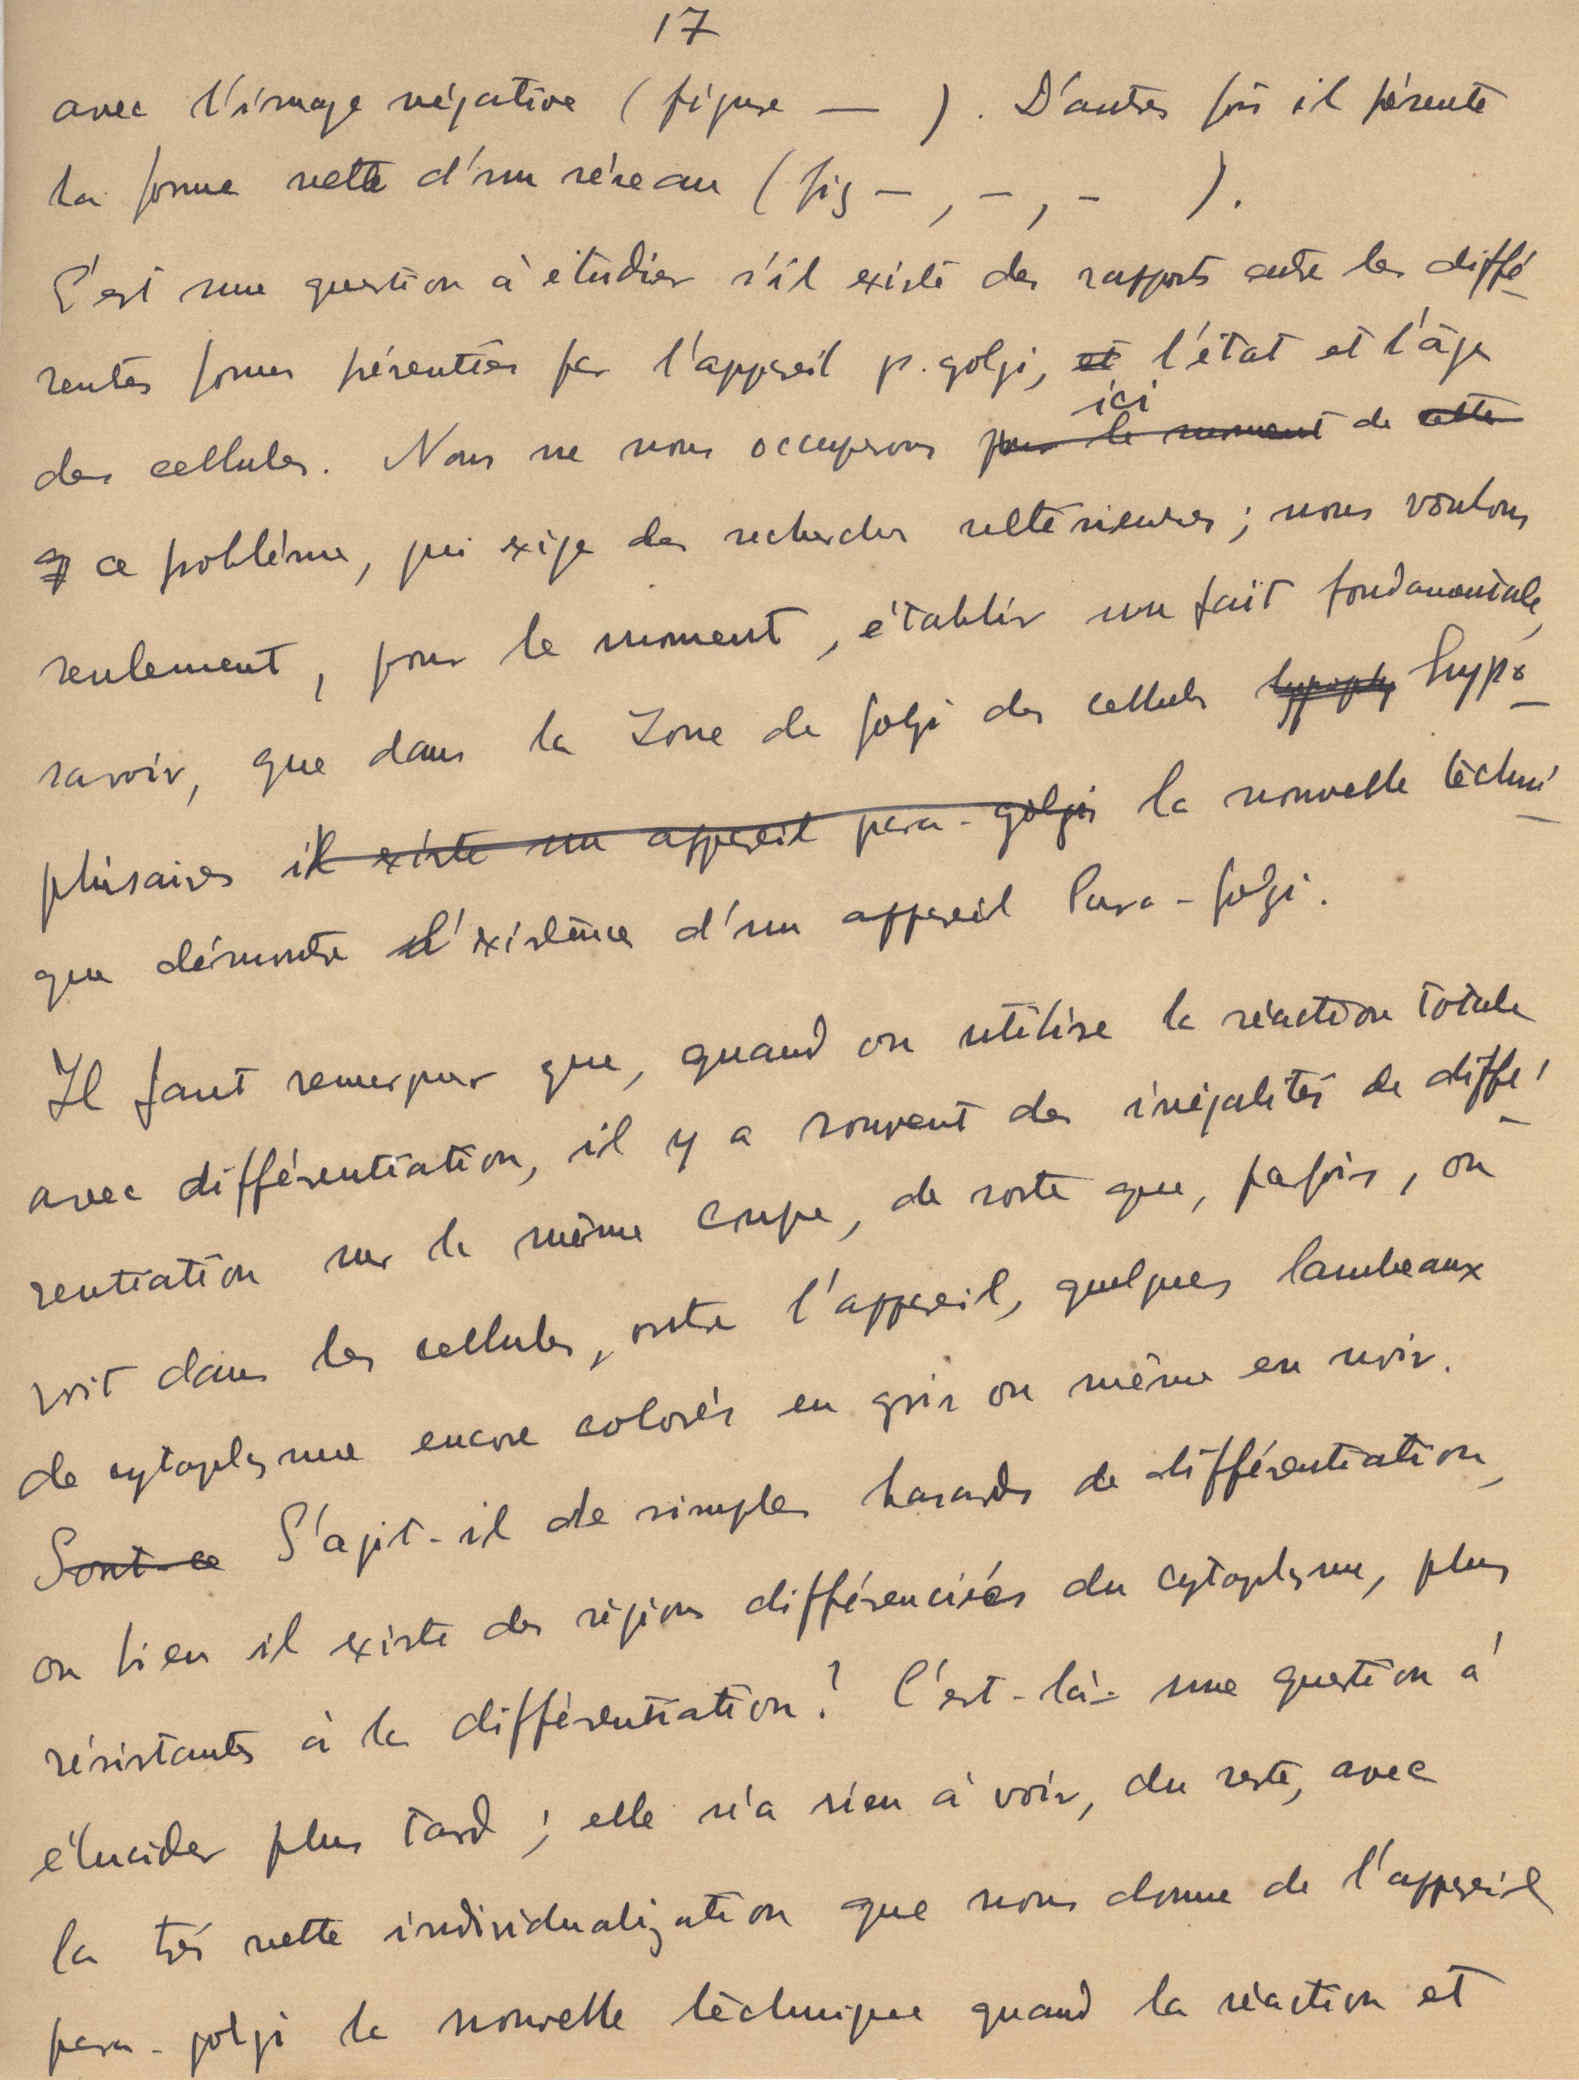 17
avec l'image négative (figure — ). D'autres fois il présente
la forme nette d'un réseau (fig — , — , — ).
C'est une question à étudier s'il existe des rapports entre les diffé-
rentes formes présentées par l'appareil p. golgi, et l'état et l'âge
ici
des cellules. Nous ne nous occuperons pour le moment de cette
q ce problème, qui exige des recherches ultérieures; nous voulons
seulement, pour le moment, établir un fait fondamentale,
savoir, que dans la Zone de golgi des cellules hypophy hypo-
phisaires il existe un appareil para-golgi la nouvelle techni-
que démontre l'existence d'un appareil Para-golgi.
Il faut remarquer que, quand on utilise la réaction totale
avec différentiation, il y a souvent des inégalités de diffé-
rentiation sur la même coupe, de sorte que, parfois, on
voit dans les cellules, outre l'appareil, quelques lambeaux
de cytoplasme encore colorés en gris ou même en noir.
Sont-ce S'agit-il de simples hasards de différentiation,
ou bien il existe des régions différenciées du cytoplasme, plus
résistantes à la différentiation? C'est-là- une question à
élucider plus tard; elle n'a rien à voir, du reste, avec
la très nette individualization que nous donne de l'appareil
para-golgi la nouvelle technique quand la réaction et